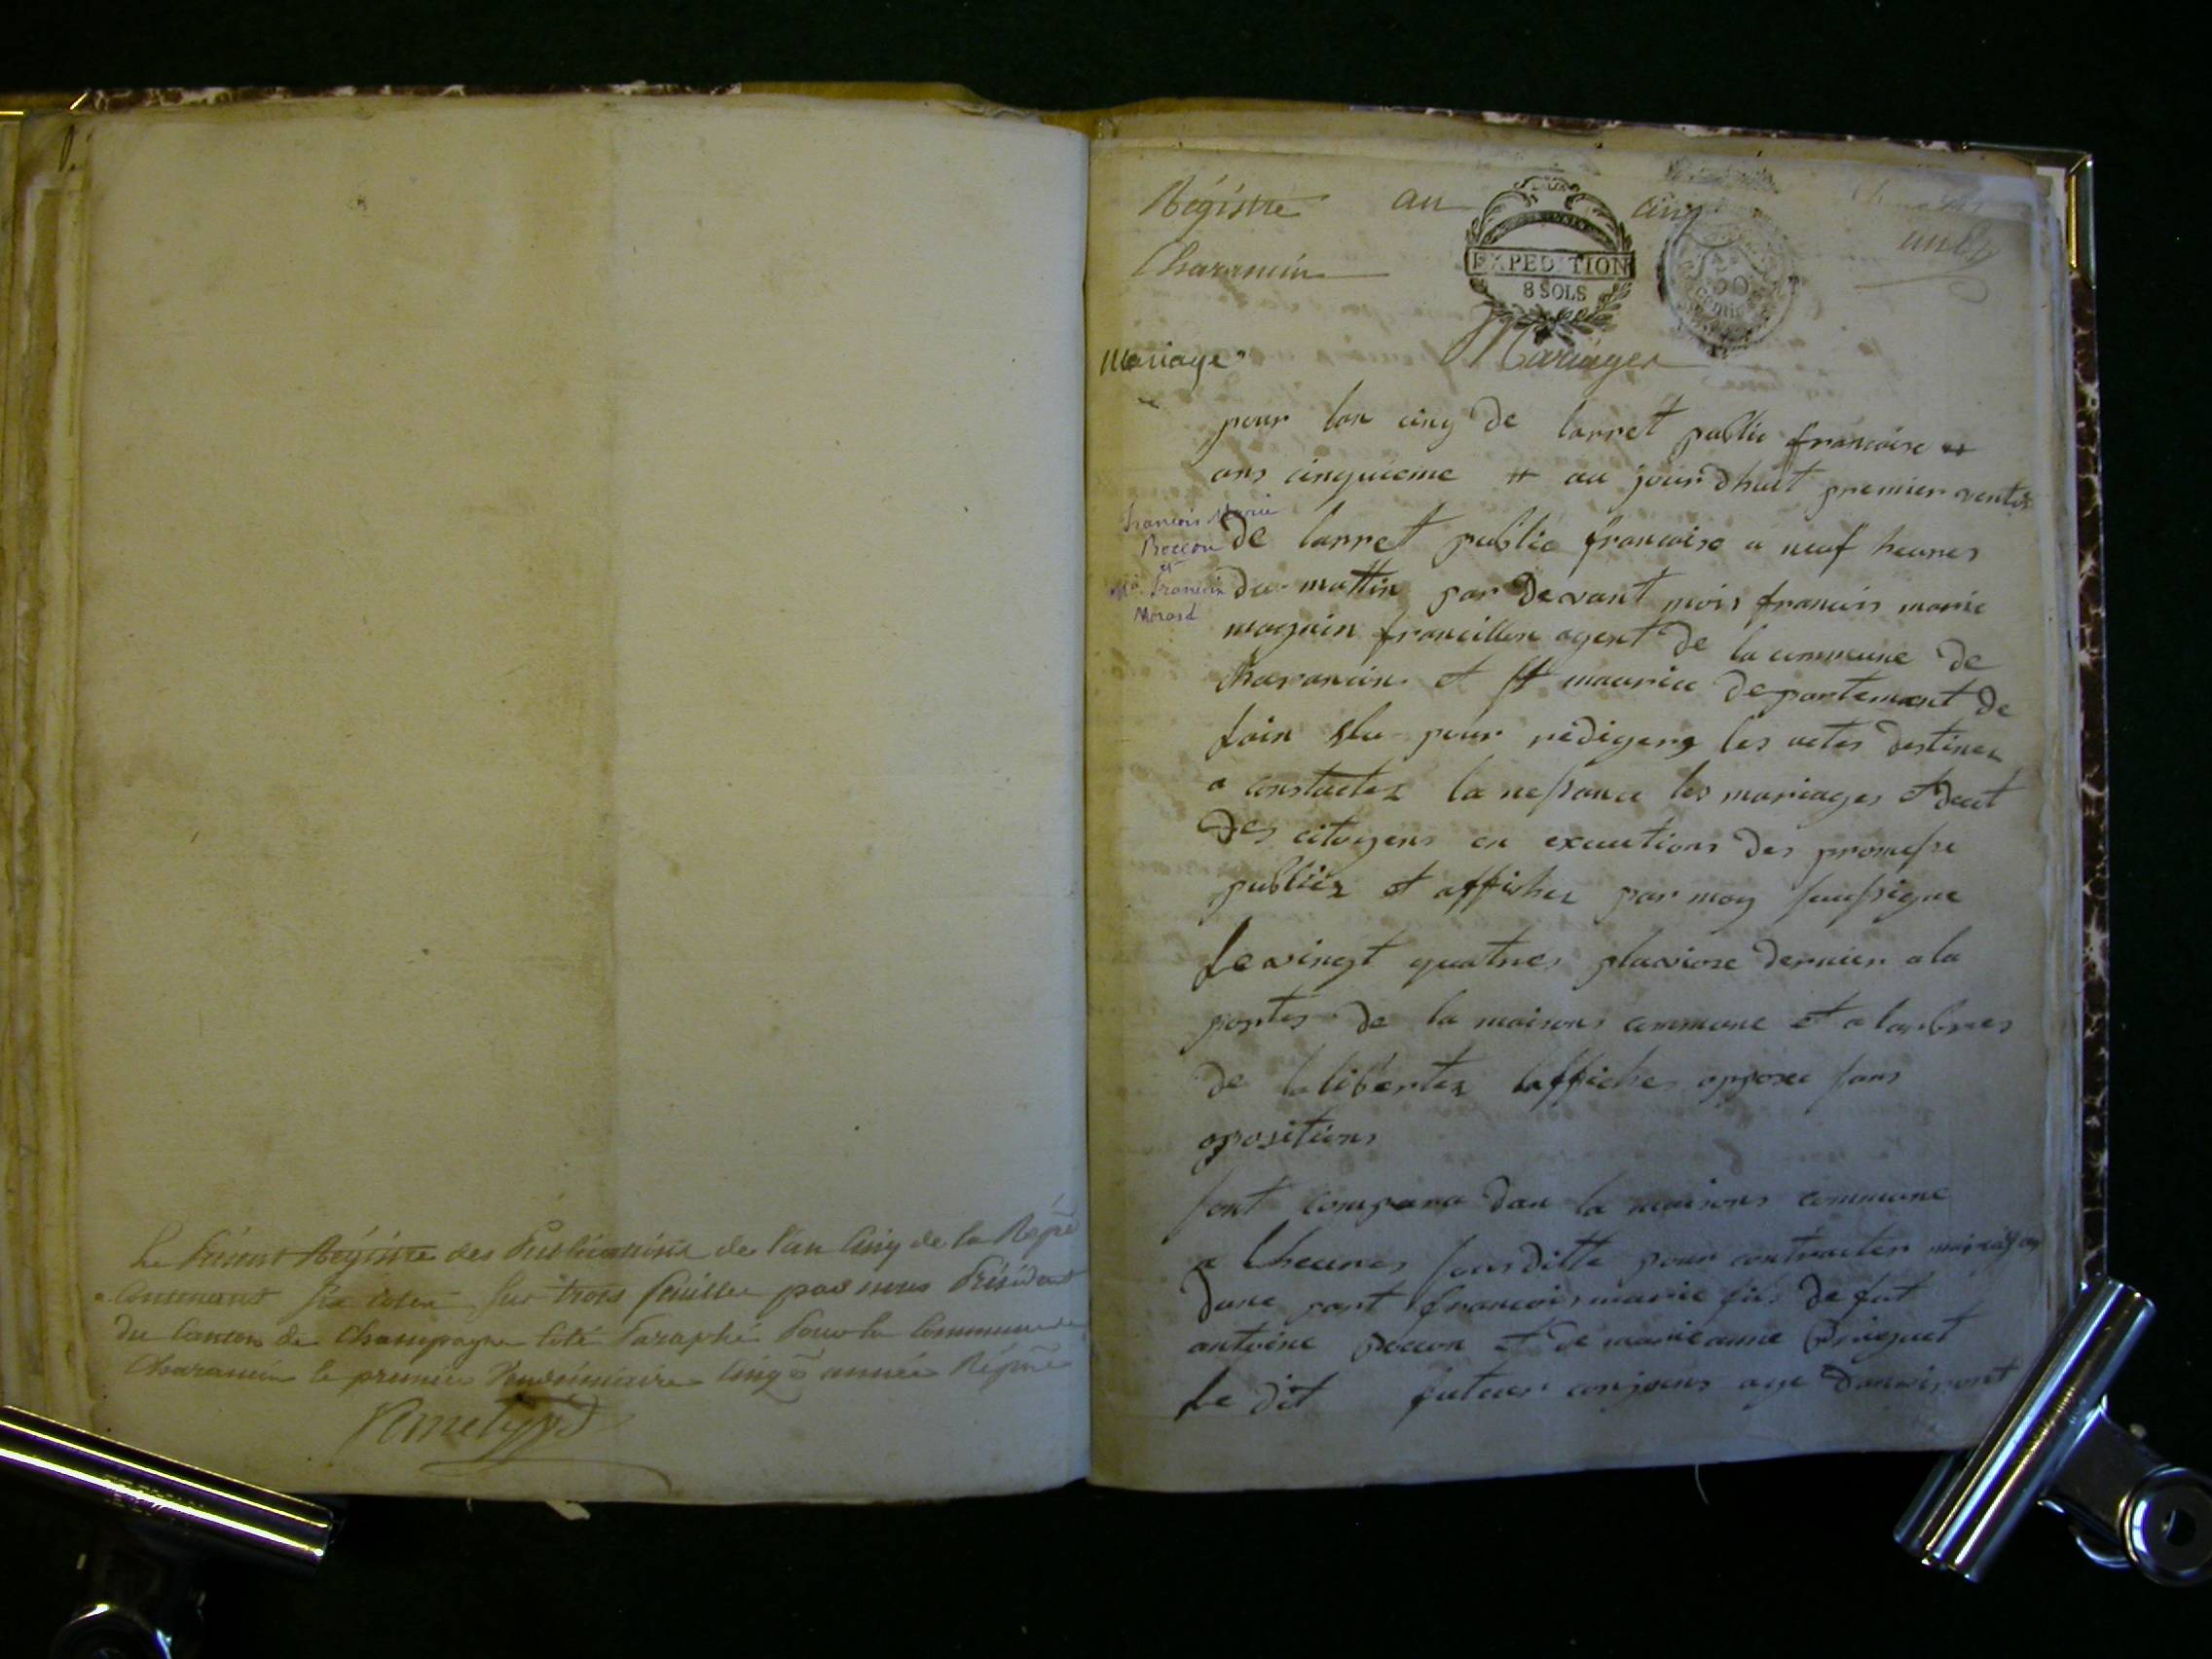 Le présent Régistre des Publications de l'an Cinq de la Répe
Contenant sur trois feuilles par nous Président
du Canton de Champagne Coté Paraphé Pour la Commune de
Charancin le premier Vendémiaire Cinqe année Répne
Régistre an cinq
Charancin
EXPEDITION
8 SOLS
50
centimes
un
Mariage
Mariages
pour lan cinq de larret public francoise #
ans cinquieme # au jour dhuit premier ventos
François Marie
Boccon
et
Françoise
Morard
de larret public francoise a neuf heures
du mattin par devant mois francois marie
magnin francillon agent de la commune de
Charancin et st maurice departement de
lain elu pour redigers les actes destinez
a constatez la nessance les mariages et deat
des citoyens en exeuctions des promesse
publiez et affichez par moy soussigne
Le vingt quatres plaviose dernier a la
portes de la maisons commune et a larbres
de la libertez laffiches apposee sans
opositions
sont compara dan la maisons commune
a lheures sous ditte pour contracter mariages
dune part francois marie fils de fut
antoine boccon et de marie anne Briguet
Le dit futeur conjoins age danviront